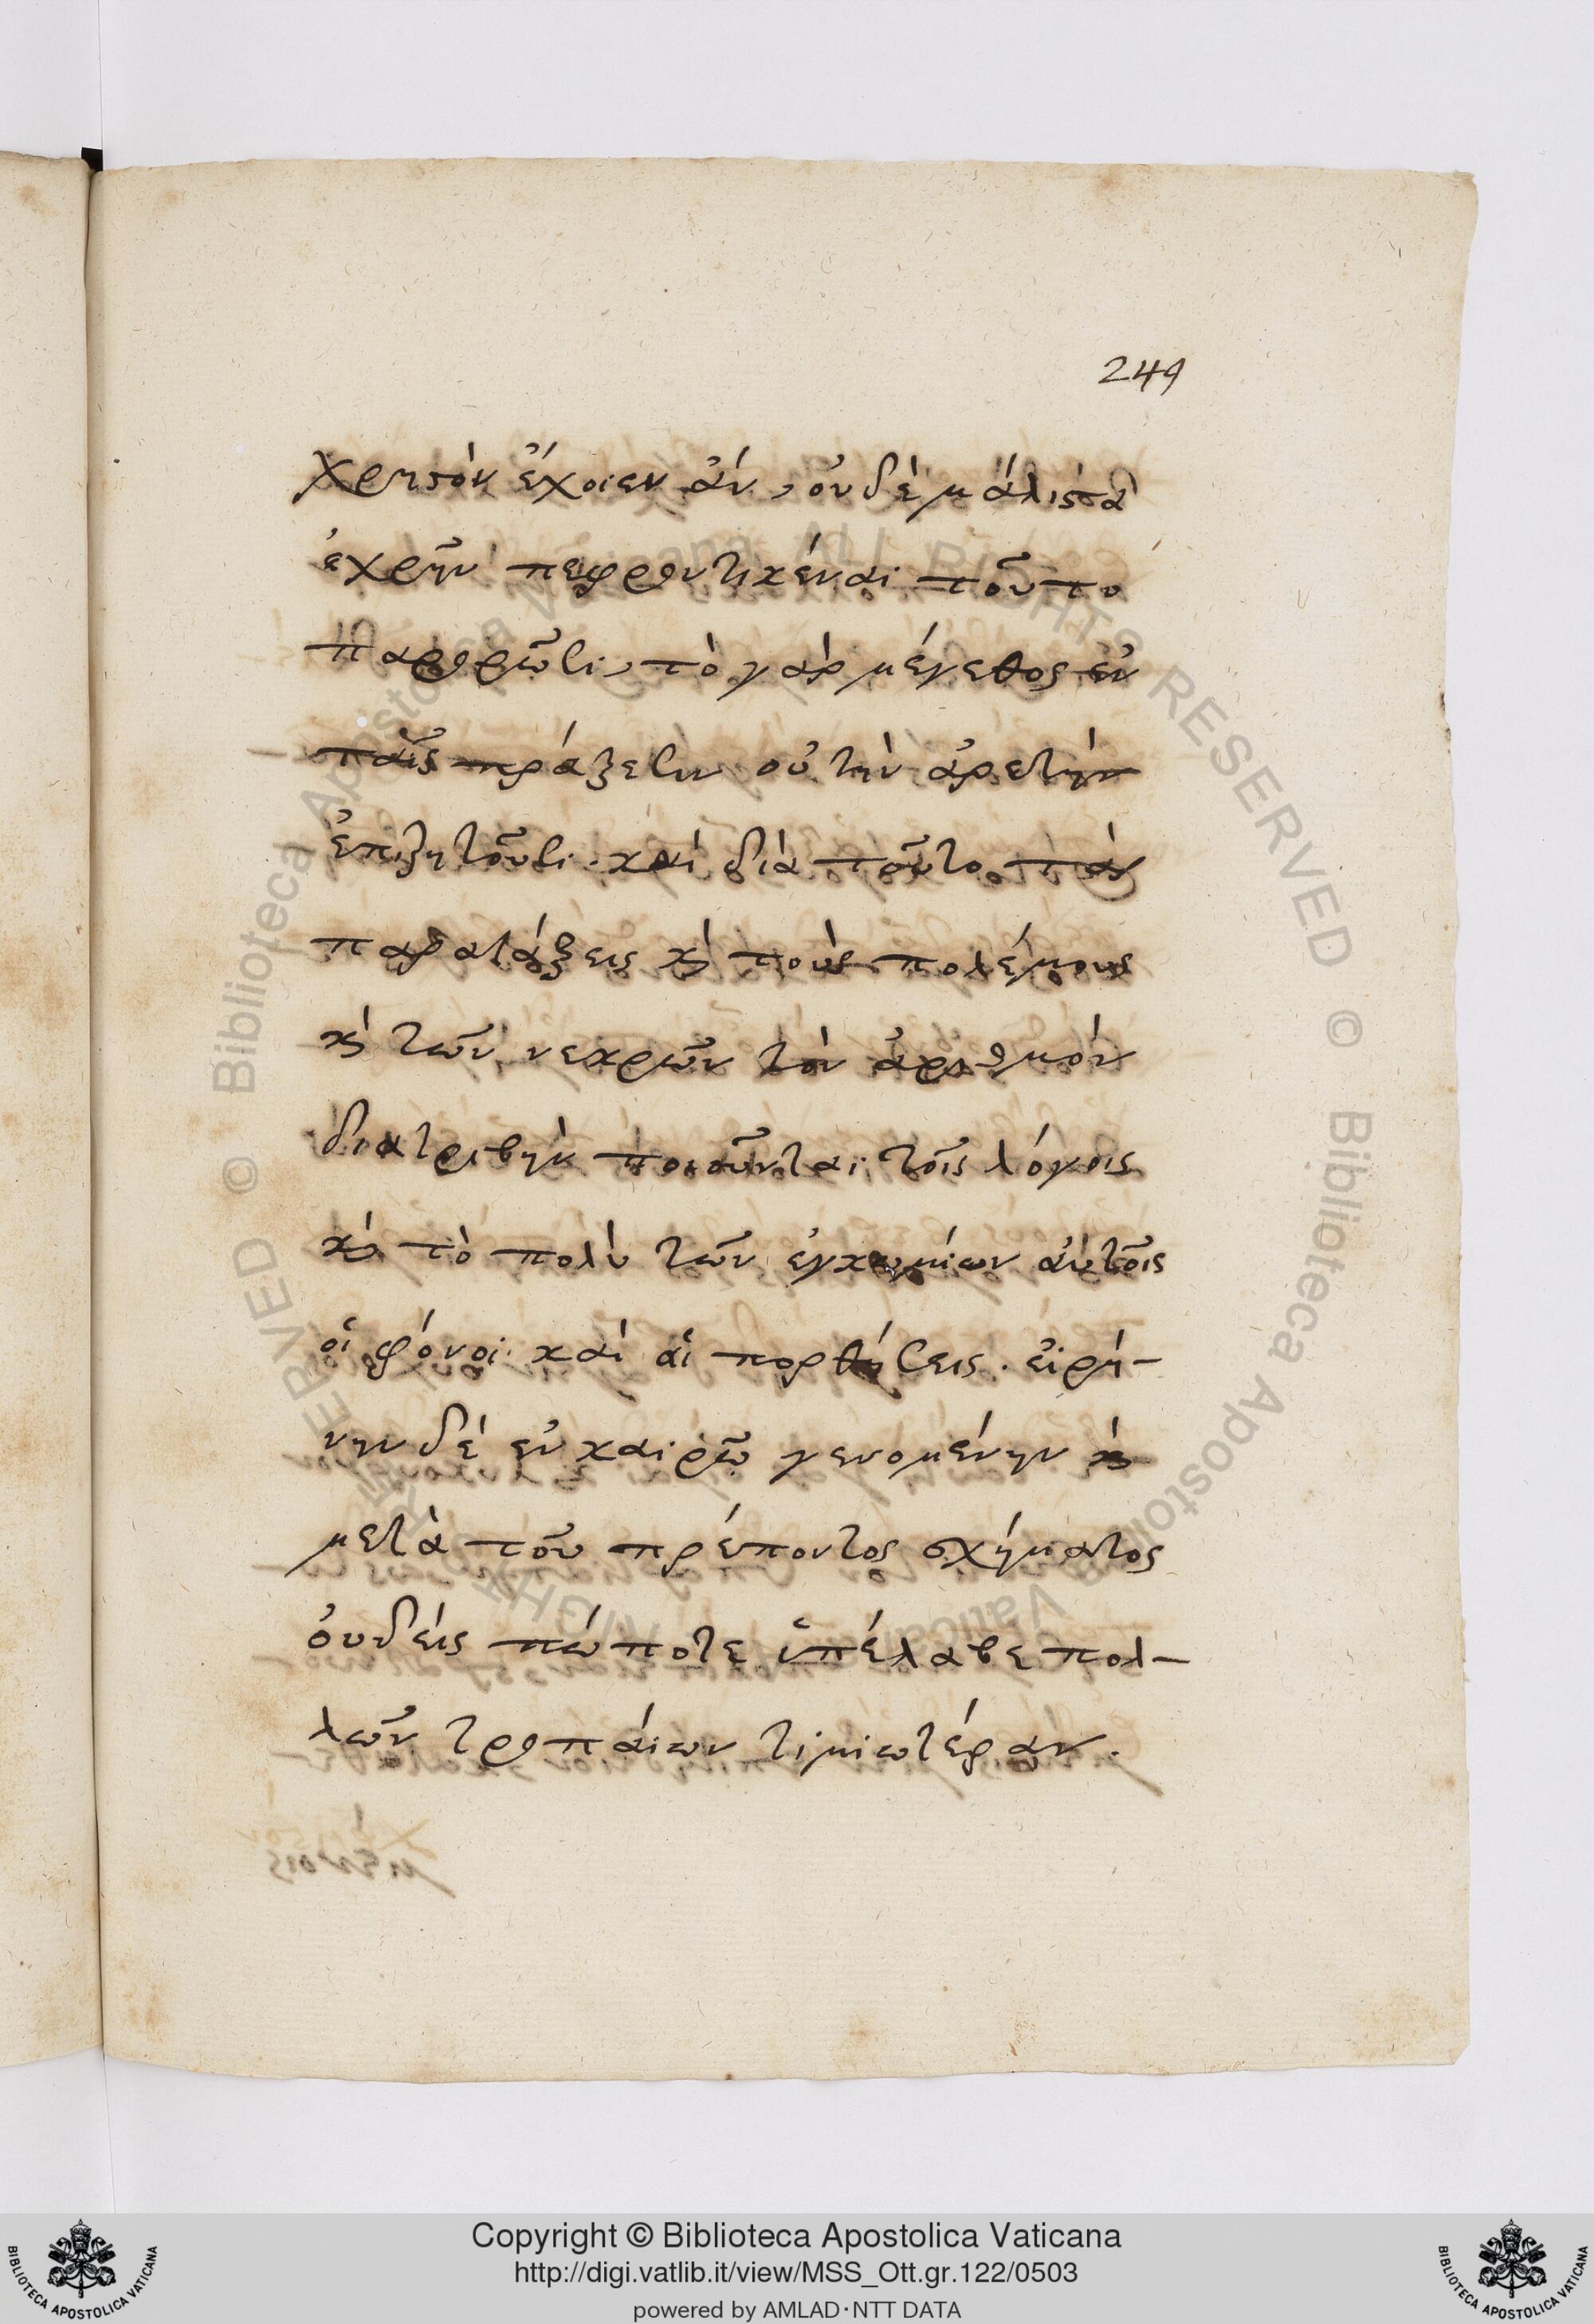 249
χρηστὸν ἔχοιεν ἄν, οὐδὲ μάλιστα
ἐχρῆν πεφροντικέναι τοῦτο
παρορῶσι, τὸ γὰρ μέγεθος ἐν
ταῖς πράξεσιν οὐ τὴν ἀρετὴν
ἐπιζητοῦσι. καὶ διὰ τοῦτο τὰς
παρατάξεις καὶ τοὺς πολέμους
καὶ τῶν νεκρῶν τὸν ἀριθμὸν
διατριβὴν ποιοῦνται τοῖς λόγοις
καὶ τὸ πολὺ τῶν ἐγκωμίων αὐτοῖς
οἱ φόνοι καὶ αἱ πορθήσεις. εἰρή-
νην δὲ ἐν καιρῷ γενομένην καὶ
μετὰ τοῦ πρέποντος σχήματος
οὐδεὶς πώποτε ὑπέλαβε πολ-
λῶν τροπαίων τιμιωτέραν.
Copyright © Biblioteca Apostolica Vaticana
http://digi.vatlib.it/view/MSS_Ott.gr.122/0503
powered by AMLAD·NTT DATA
BIBLIOTECA APOSTOLICA VATICANA
BIBLIOTECA APOSTOLICA VATICANA